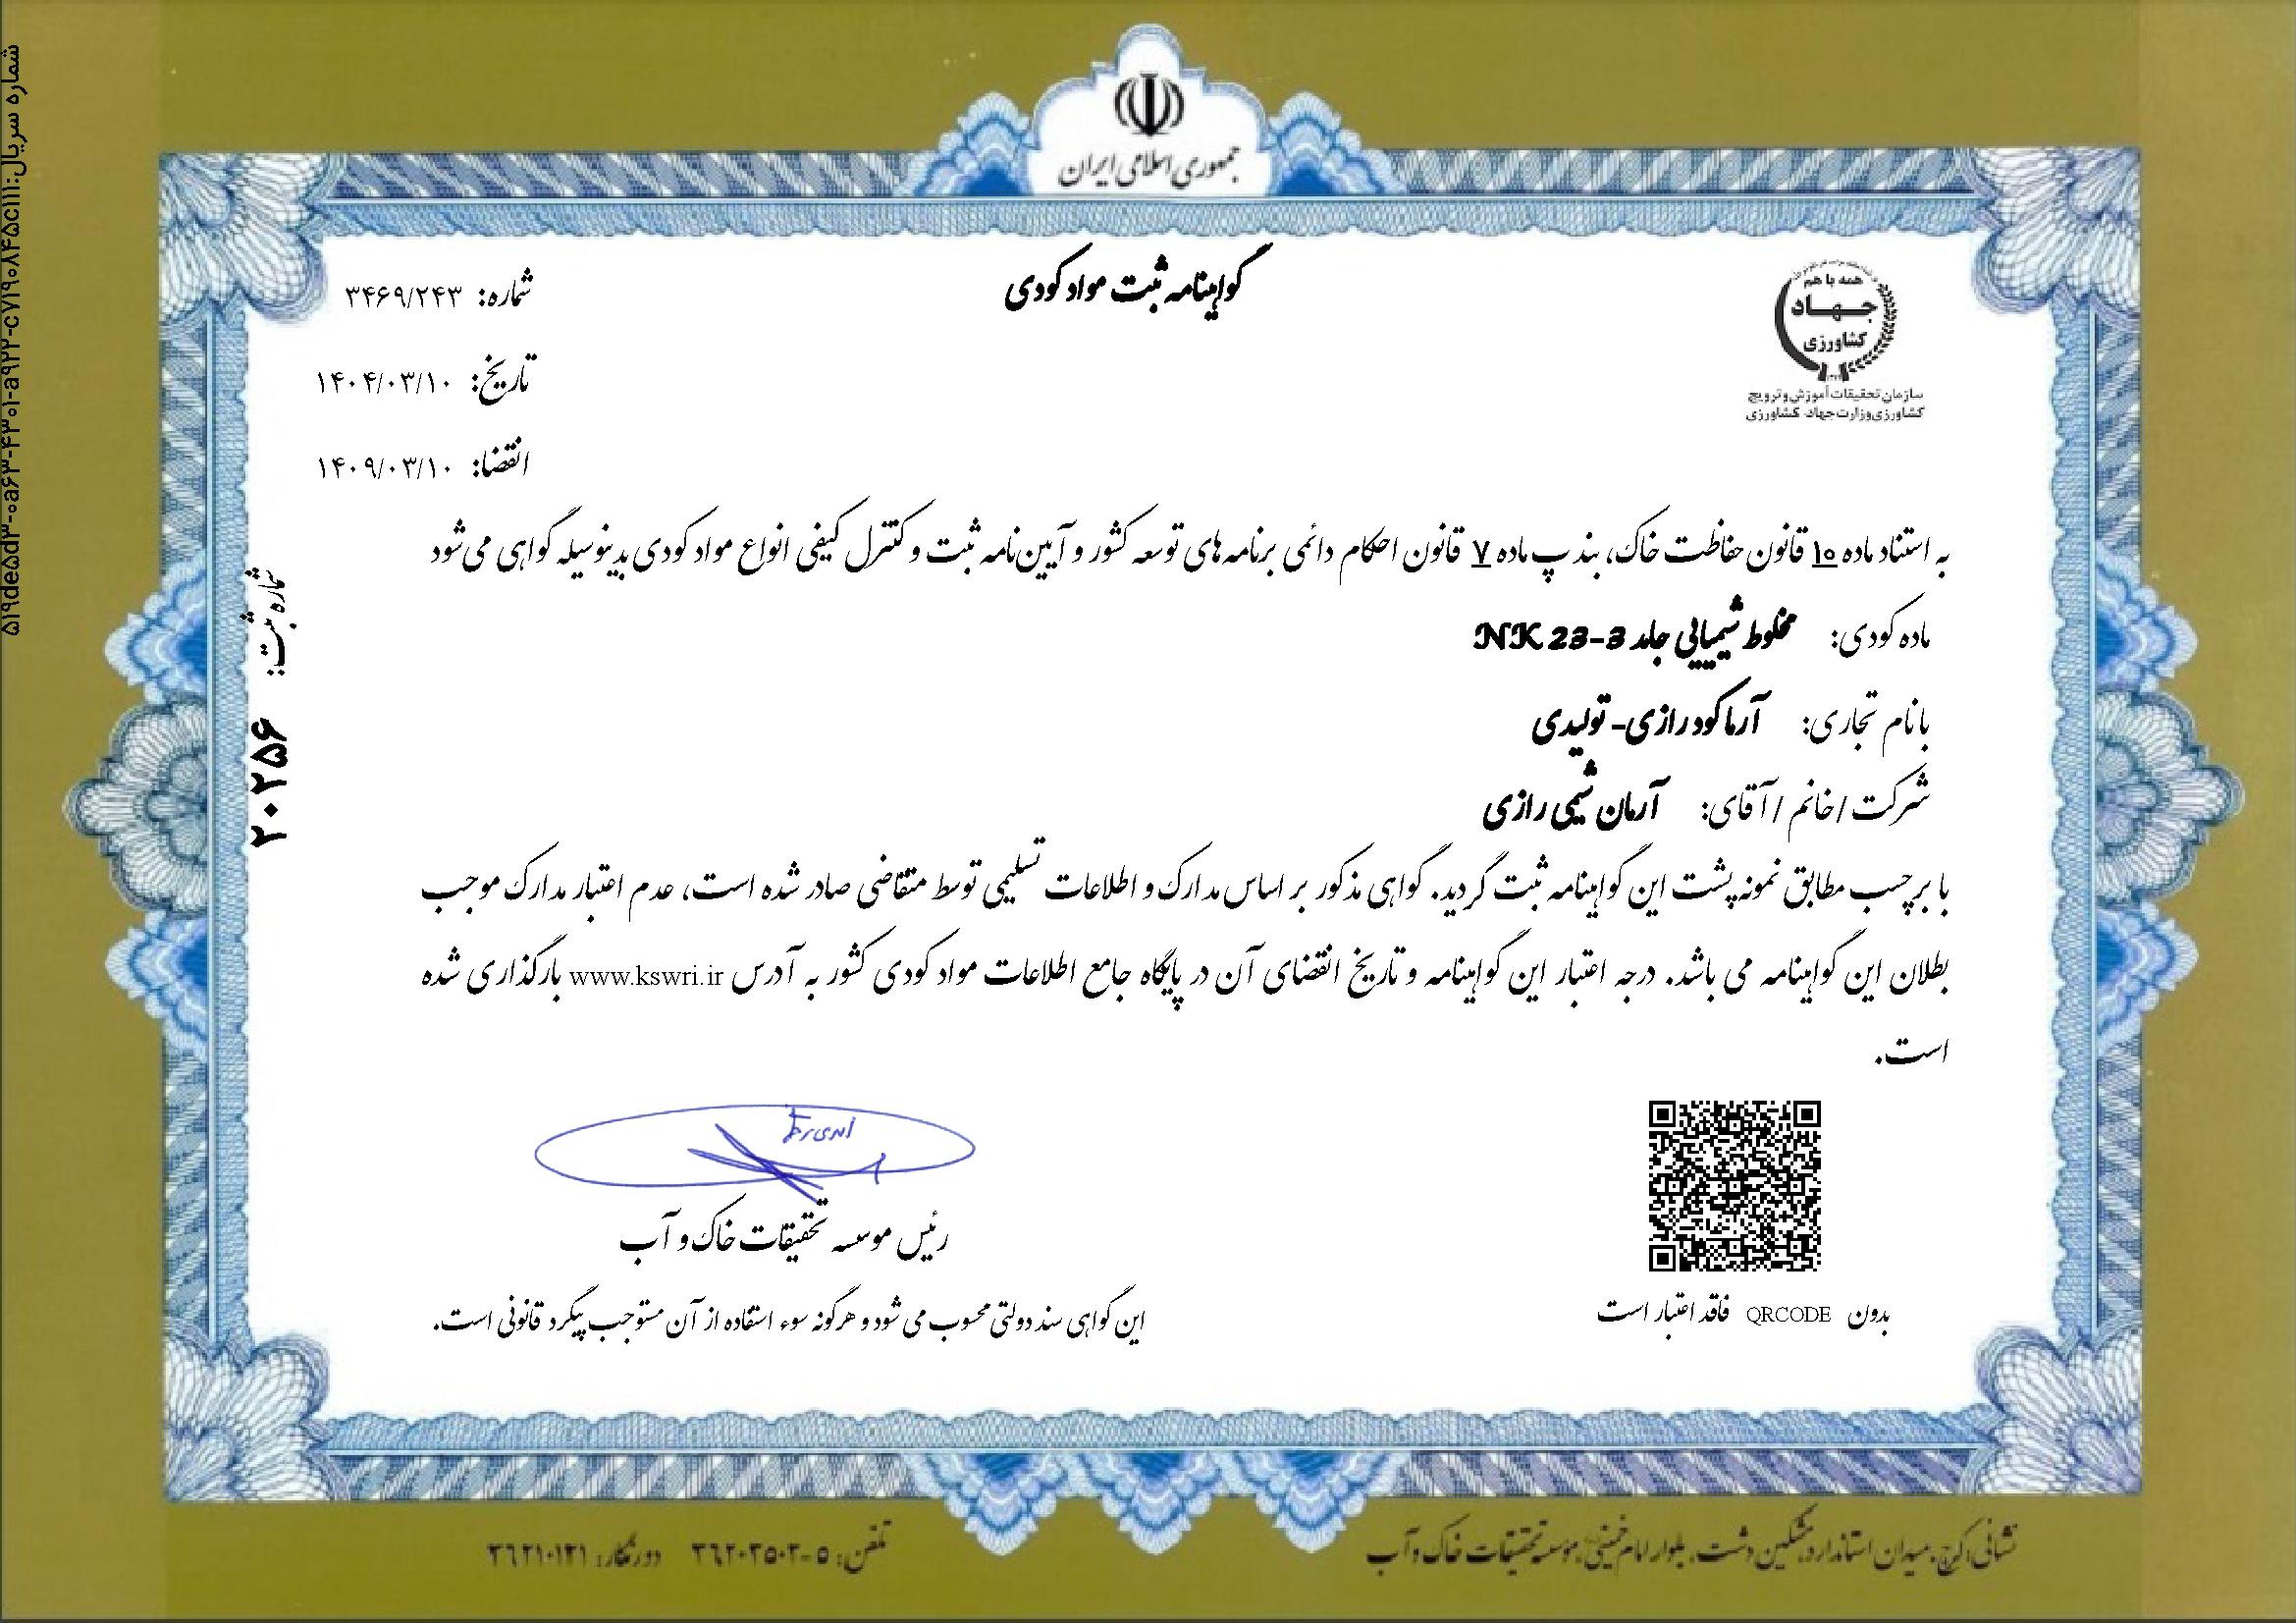 جمهوری اسلامی ایران
همه با هم
جهاد
کشاورزی
سازمان تحقیقات آموزش و ترویج
کشاورزی وزارت جهاد کشاورزی
گواهینامه ثبت مواد کودی
شماره: ۳۴۶۹/۲۴۳
تاریخ: ۱۴۰۴/۰۳/۱۰
انقضا: ۱۴۰۹/۰۳/۱۰
به استناد ماده ۱۰ قانون حفاظت خاک، بند پ ماده ۷ قانون احکام دائمی برنامه های توسعه کشور و آیین نامه ثبت و کنترل کیفی انواع مواد کودی بدینوسیله گواهی می شود
ماده کودی: مخلوط شیمیایی جامد NK 23-3
با نام تجاری: آرما کود رازی- تولیدی
شرکت / خانم / آقای: آرمان شیمی رازی
با برچسب مطابق نمونه پشت این گواهینامه ثبت گردید. گواهی مذکور بر اساس مدارک و اطلاعات تسلیمی توسط متقاضی صادر شده است، عدم اعتبار مدارک موجب
بطلان این گواهینامه می باشد. درجه اعتبار این گواهینامه و تاریخ انقضای آن در پایگاه جامع اطلاعات مواد کودی کشور به آدرس www.kswri.ir بارگذاری شده
است.
رئیس موسسه تحقیقات خاک و آب
بدون QRCODE فاقد اعتبار است
این گواهی سند دولتی محسوب می شود و هرگونه سوء استفاده از آن مستوجب پیگرد قانونی است.
شماره ثبت: ۲۰۲۵۶
شماره سریال:۵۱۹de۵d۳-۰a۶۳-۴۳۰۱-a۹۲۲-c۷۱۹۰۸۴۵c۱۱۱
نشانی: کرج، میدان استاندارد، مشکین دشت، بلوار امام خمینی، موسسه تحقیقات خاک و آب
تلفن: ۵-۳۶۲۰۲۵۰۲ دورنگار: ۳۶۲۱۰۱۲۱